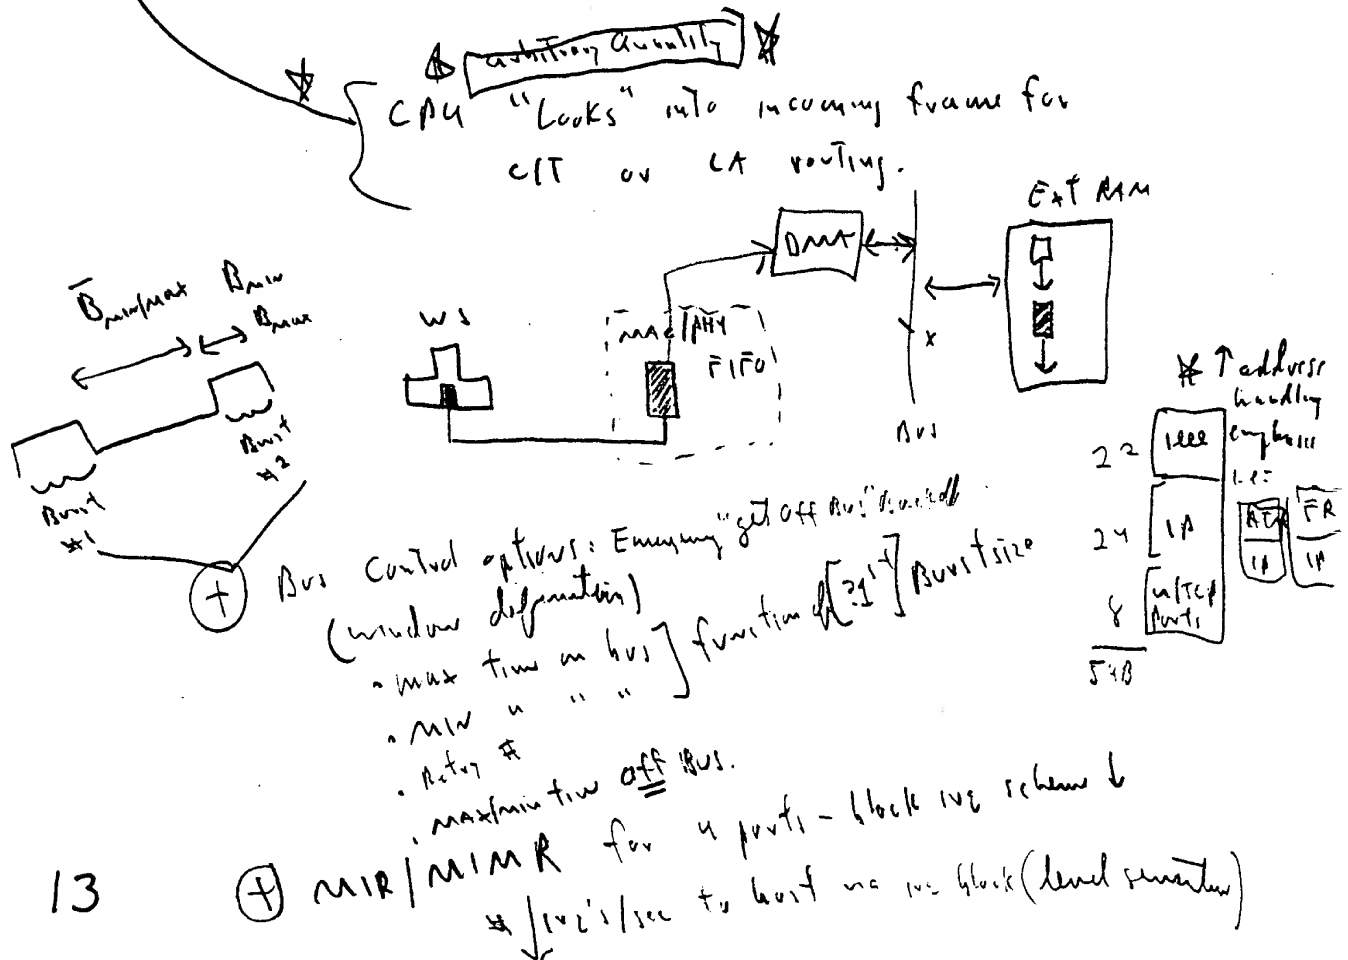 arbitrary Quantity
CPU "Looks" into incoming frame for
C/T or CA routing.
Ext RAM
DMA
B̄min/max Bmin
Bmax
WS
MAC/PHY
FIFO
x
Bus
Burst
#1
Burst
#2
↑ address
handling
emphasis
22 IEEE
24 IP
8 TCP
Ports
54B
ATM
IP
FR
IP
+ Bus Control options: "get off Bus"
(window)
• max time on bus] function of [?1st] Burst size
• MIN " " "
• Retry #
• max/min time off Bus.
13
+ MIR/MIMR for 4 ports - block irq scheme ↓
* ↓ irq's/sec to host via irq block (level sensitive)